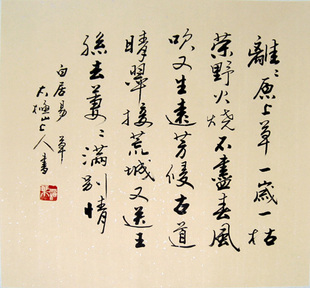 離〻原上草一歲一枯
榮野火燒不盡春風
吹又生遠芳侵古道
晴翠接荒城又送王
孫去萋〻滿別情
白居易 草
山上人書